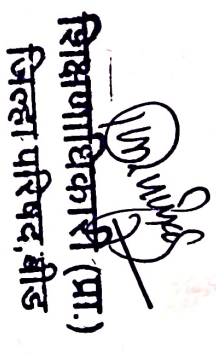 शिक्षणाधिकारी (प्रा.)
जिल्हा परिषद,बीड